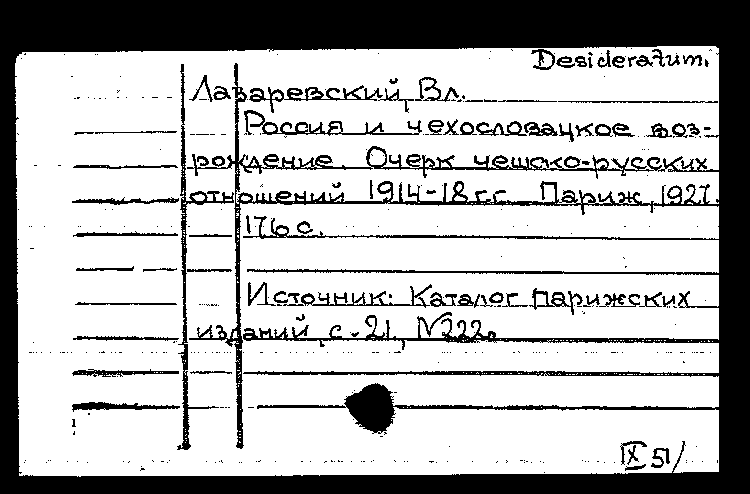 Desideratum.
Лазаревский, Вл.
Россия и чехословацкое воз-
рождение. Очерк чешско-русских
отношений 1914-18 г.г. Париж, 1927.
176 с.
Источник: Каталог парижских
изданий, с. 21, №222.
IX 51/